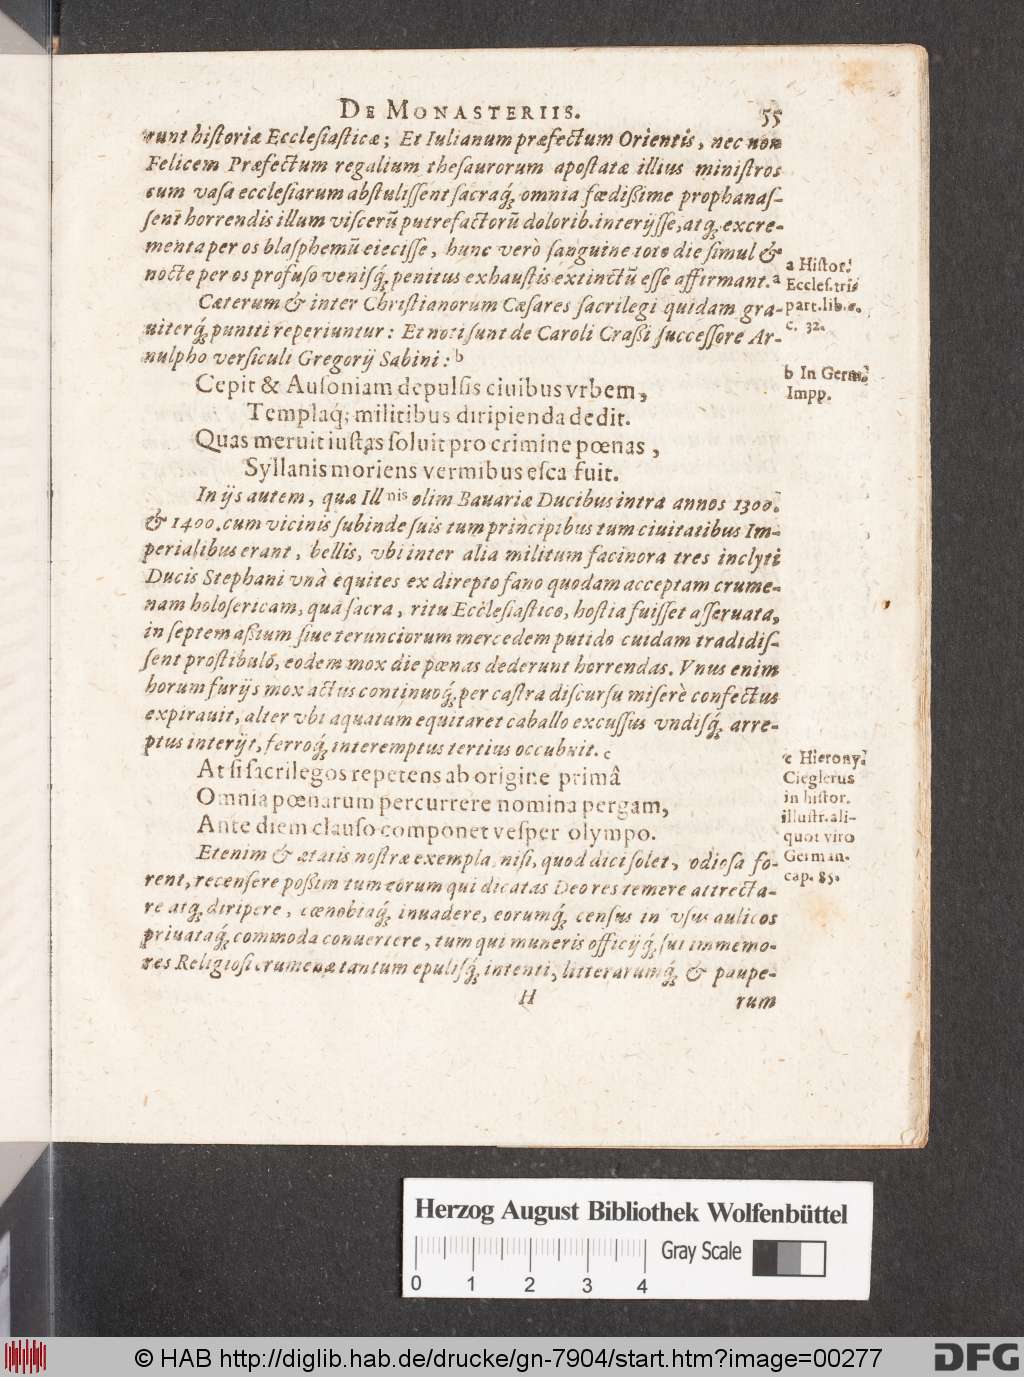 DE MONASTERIIS. 55
runt historiæ Ecclesiasticæ; Et Iulianum præfectum Orientis, nec non
Felicem Præfectum regalium thesaurorum apostatæ illius ministros
cum vasa ecclesiarum abstulissent sacraq́; omnia fœdißime prophanas-
sent horrendis illum viscerũ putrefactorũ dolorib. interijsse, atq́; excre-
menta per os blasphemũ eiecisse, hunc verò sanguine toto die simul &
nocte per os profuso venisq́; penitus exhaustis extinctũ esse affirmant. a
Cæterum & inter Christianorum Cæsares sacrilegi quidam gra-
uiterq́; puniti reperiuntur: Et noti sunt de Caroli Craßi successore Ar-
nulpho versiculi Gregorij Sabini: b
Cepit & Ausoniam depulsis ciuibus vrbem,
Templaq́; militibus diripienda dedit.
Quas meruit iustas soluit pro crimine pœnas,
Syllanis moriens vermibus esca fuit.
In ijs autem, quæ Ill nis olim Bauariæ Ducibus intra annos 1300.
& 1400. cum vicinis subinde suis tum principibus tum ciuitatibus Im-
perialibus erant, bellis, vbi inter alia militum facinora tres inclyti
Ducis Stephani vnà equites ex direpto fano quodam acceptam crume-
nam holosericam, quâ sacra, ritu Ecclesiastico, hostia fuisset asseruata,
in septem aßium siue terunciorum mercedem putido cuidam tradidis-
sent prostibulo, eodem mox die pœnas dederunt horrendas. Vnus enim
horum furijs mox actus continuoq́; per castra discursu miserè confectus
expirauit, alter vbi aquatum equitaret caballo excussus vndisq́; arre-
ptus interijt, ferroq́; interemptus tertius occubuit. c
At si sacrilegos repetens ab origine primâ
Omnia pœnarum percurrere nomina pergam,
Ante diem clauso componet vesper olympo.
Etenim & ætatis nostræ exempla, nisi, quod dici solet, odiosa fo-
rent, recensere poßim tum eorum qui dicatas Deo res temere attrecta-
re atq́; diripere, cœnobiaq́; inuadere, eorumq́; census in vsus aulicos
priuataq́; commoda conuertere, tum qui muneris officijq́; sui immemo-
res Religiosi crumenæ tantum epulisq́; intenti, litterarumq́; & paupe-
H rum
a Histor.
Eccles. tri-
part. lib. 6.
c. 32.
b In Germ.
Impp.
c Hierony.
Cieglerus
in histor.
illustr. ali-
quot viro
German.
cap. 85.
Herzog August Bibliothek Wolfenbüttel
0 1 2 3 4 Gray Scale
© HAB http://diglib.hab.de/drucke/gn-7904/start.htm?image=00277
DFG